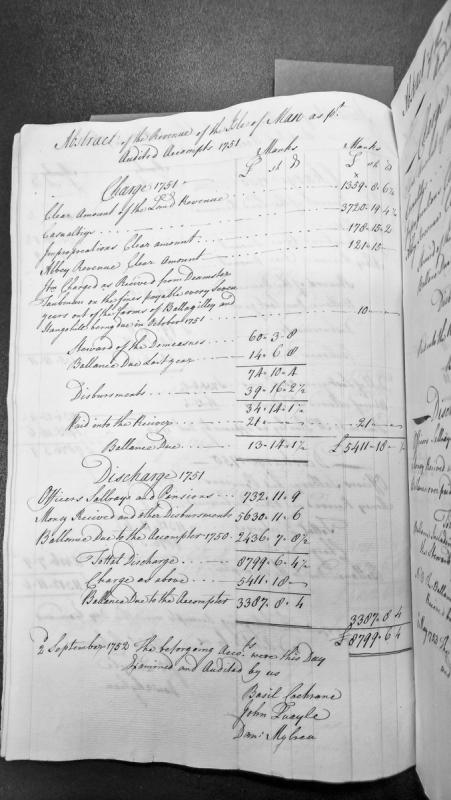 Abstract of the Revenue of the Isle of Man as pr.
Audited Accompts 1751
Manks Manks
£ sh d £ sh d
Charge 1751
Clear Amount of the Land Revenue 1359 - 8 - 6½
Casualtys 3720 - 19 - 4½
Impropriations Clear amount 178 - 15 - 2
Abbey Revenue Clear Amount 121 - 15 -
Itm Charged as Reived from Deemster
Taubman on the fines payable every Seven
years out of the farms of Ballagilley and
being due in October 1751 10
Steward of the Demeasnes 60 - 3 - 8
Ballance Due Last year 14 - 6 - 8
74 - 10 - 4
Disbursments 39 - 16 - 2½
34 - 14 - 1½
Paid into the Reicever 21 21
Ballance Due 13 - 14 - 1½ £ 5411 - 18 -
Discharge 1751
Officers Sallarys and Pensions 732 . 11 . 9
Money Reicved and other Disbursments 5630 . 11 . 6
Ballance Due to the Accompter 1750 2436 . 7 . 0½
Tottal Discharge 8799 . 6 . 4½
Charge as above 5411 . 18 -
Ballance Due to the Accompter 3387 . 8 . 4
3387 . 8 4
£ 8799 . 6 4
2 September 1752 The foregoing Accots. were this Day
Examined and Audited by us
Basil Cochrane
John Quayle
Danl: Mylrea